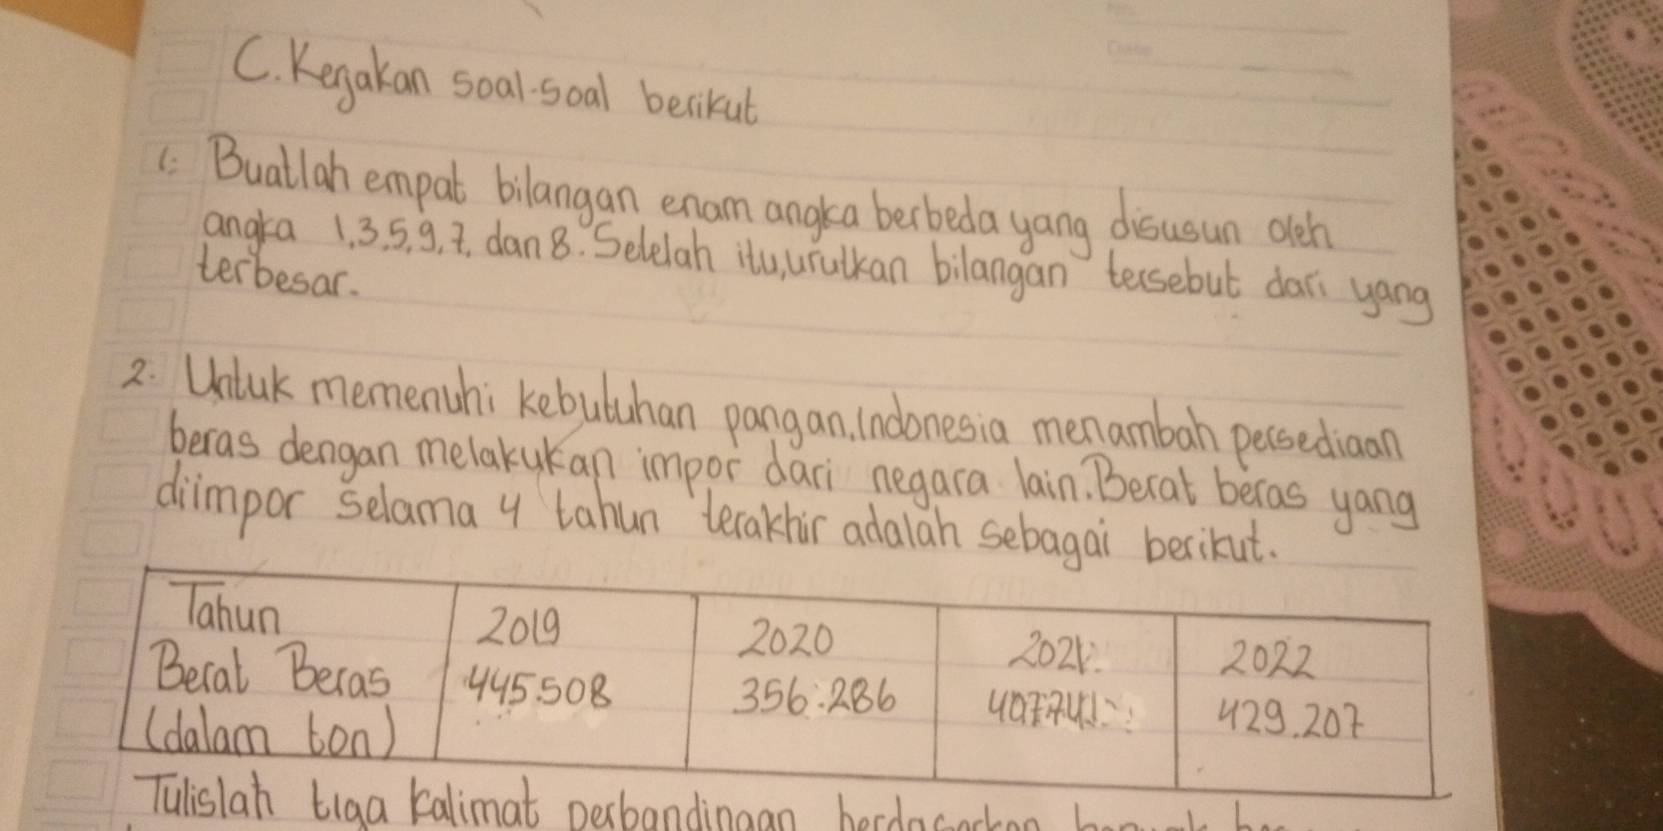 C. Kerjakan soal-soal berikut
1. Buatlah empat bilangan enam angka berbeda yang disusun oleh
angka 1,3,5,9,7, dan 8. Setelah itu, urutkan bilangan tersebut dari yang
terbesar.
2. Untuk memenuhi kebutuhan pangan, Indonesia menambah persediaan
beras dengan melakukan impor dari negara lain. Berat beras yang
diimpor selama 4 tahun terakhir adalah sebagai berikut.
Tahun 2019 2020 2021 2022
Berat Beras 445.508 356.286 407.741 429.207
(dalam ton)
Tulislah tiga kalimat perbandingan berdasarkan